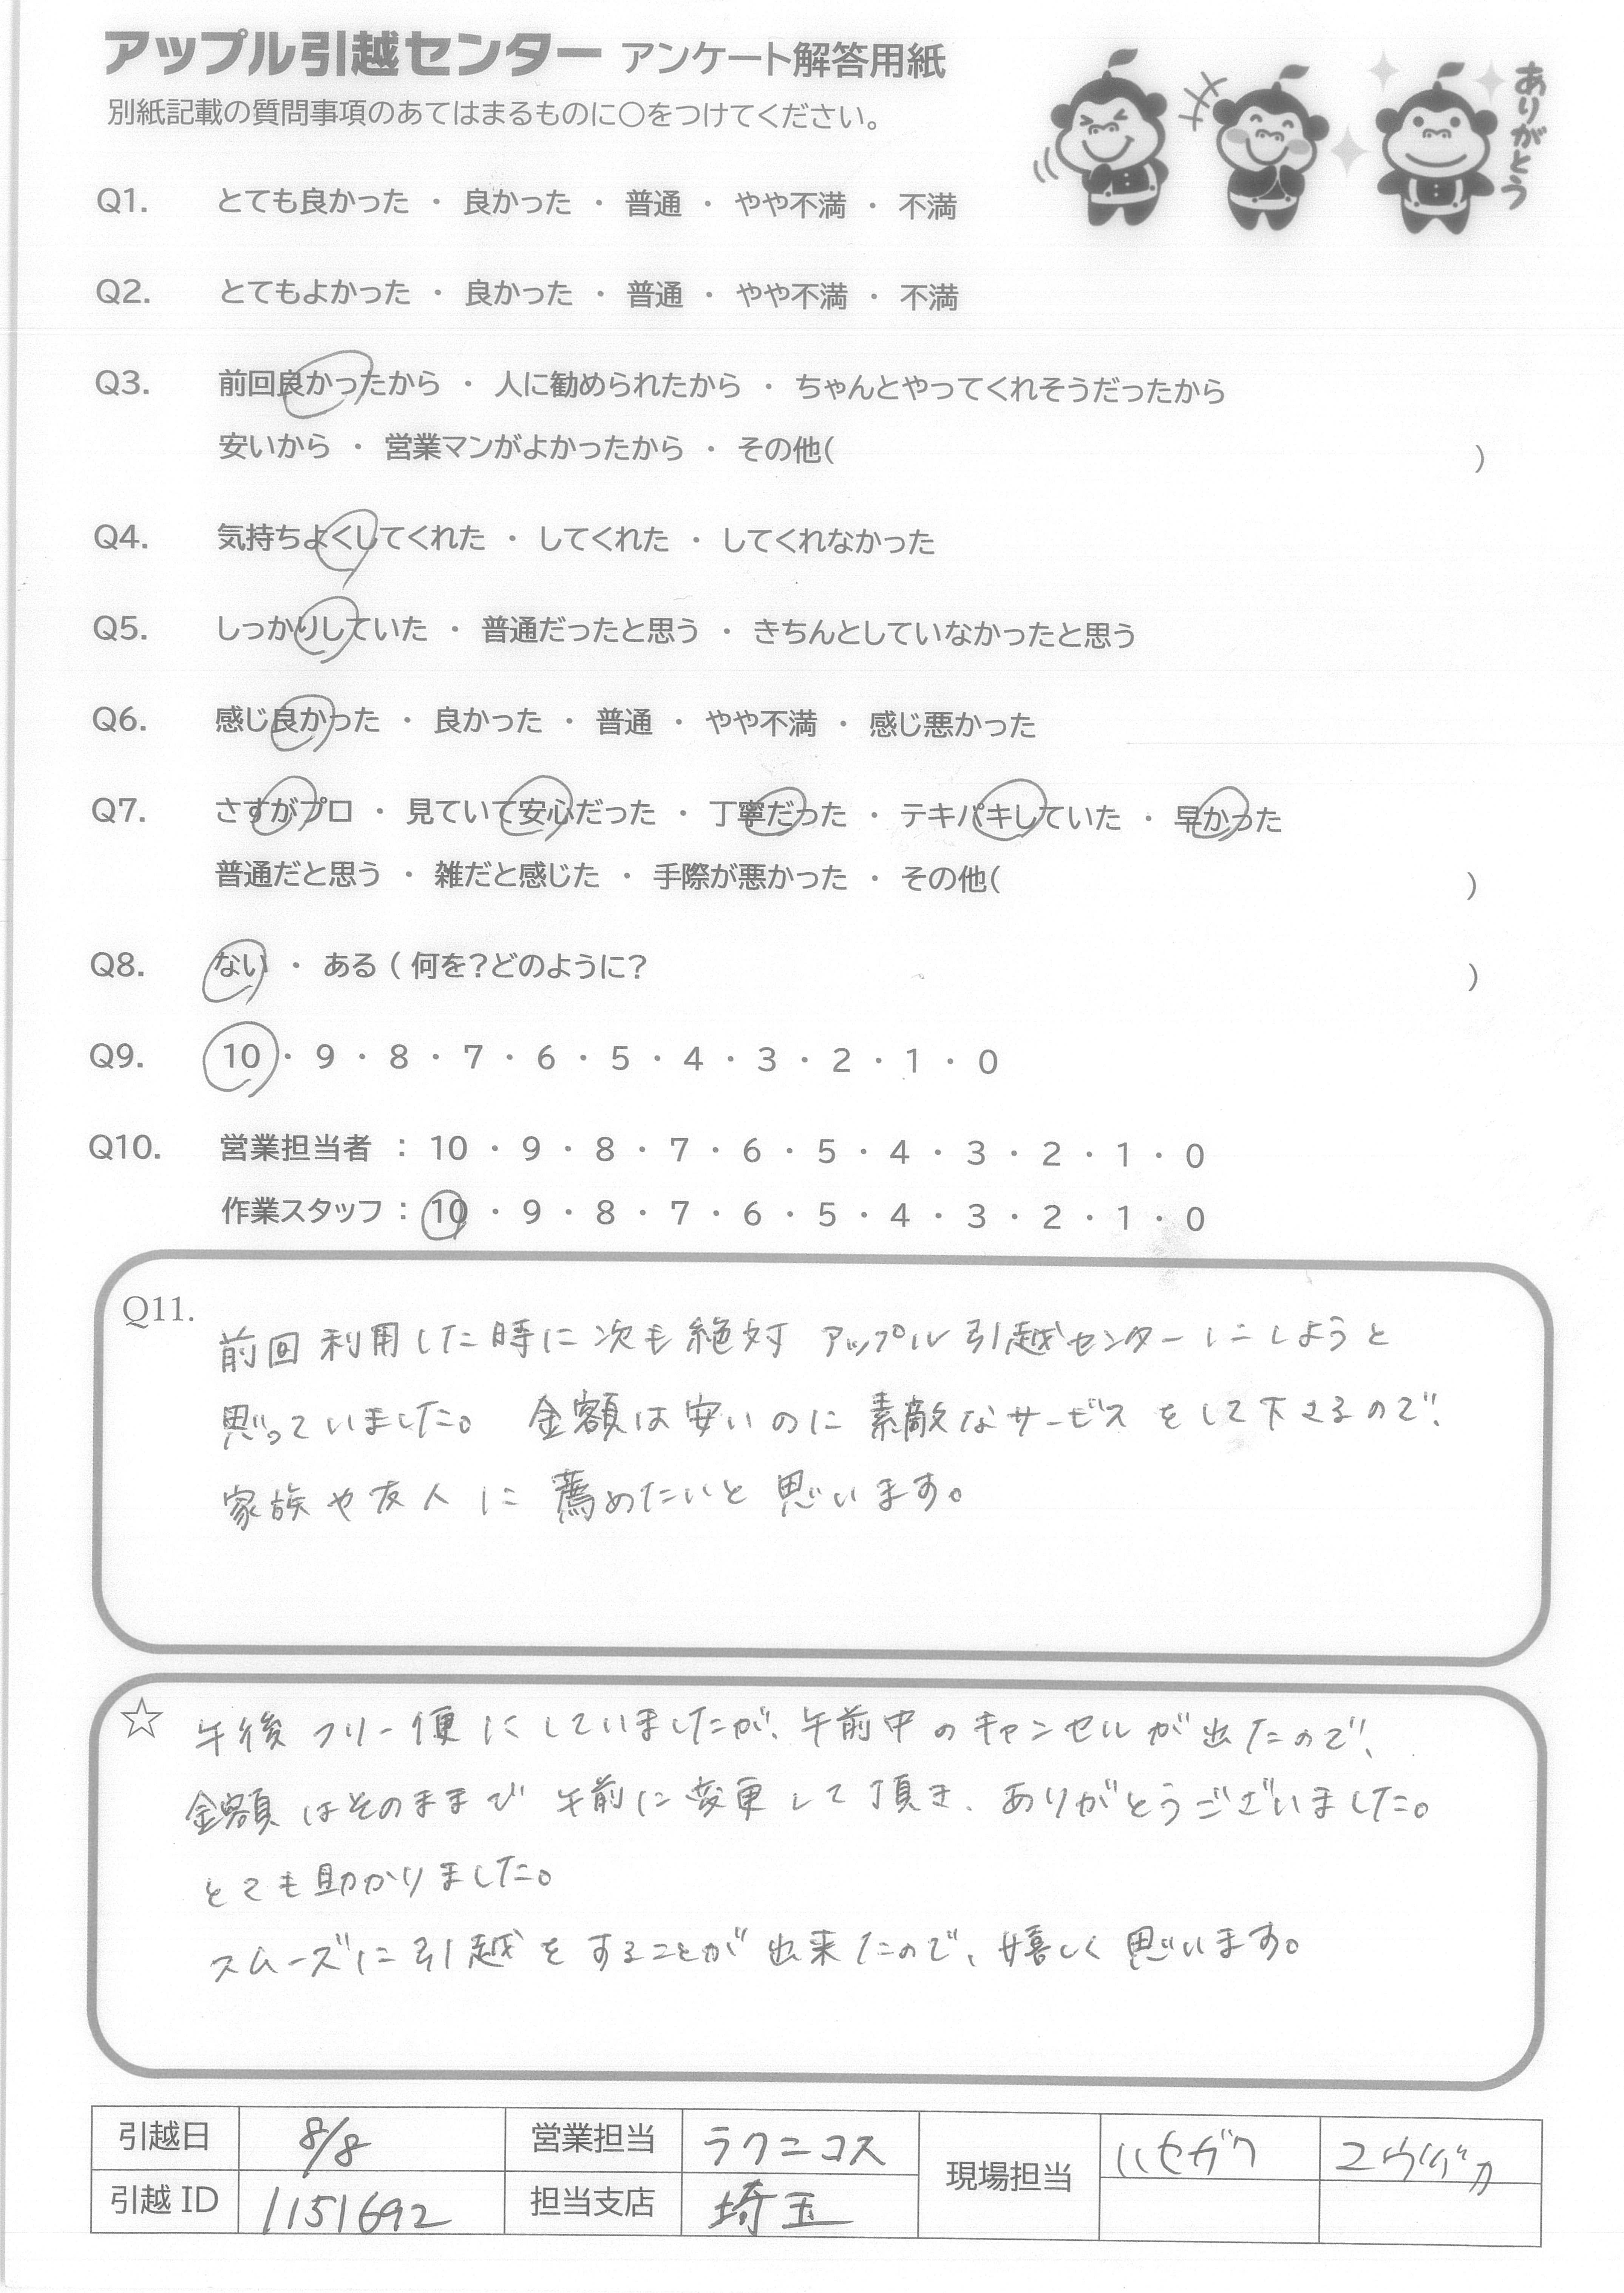 アップル引越センター アンケート解答用紙
別紙記載の質問事項のあてはまるものに〇をつけてください。
ありがとう
Q1. とても良かった ・ 良かった ・ 普通 ・ やや不満 ・ 不満
Q2. とてもよかった ・ 良かった ・ 普通 ・ やや不満 ・ 不満
Q3. 前回良かったから ・ 人に勧められたから ・ ちゃんとやってくれそうだったから
安いから ・ 営業マンがよかったから ・ その他( )
Q4. 気持ちよくしてくれた ・ してくれた ・ してくれなかった
Q5. しっかりしていた ・ 普通だったと思う ・ きちんとしていなかったと思う
Q6. 感じ良かった ・ 良かった ・ 普通 ・ やや不満 ・ 感じ悪かった
Q7. さすがプロ ・ 見ていて安心だった ・ 丁寧だった ・ テキパキしていた ・ 早かった
普通だと思う ・ 雑だと感じた ・ 手際が悪かった ・ その他( )
Q8. ない ・ ある ( 何を?どのように? )
Q9. 10 ・ 9 ・ 8 ・ 7 ・ 6 ・ 5 ・ 4 ・ 3 ・ 2 ・ 1 ・ 0
Q10. 営業担当者 : 10 ・ 9 ・ 8 ・ 7 ・ 6 ・ 5 ・ 4 ・ 3 ・ 2 ・ 1 ・ 0
作業スタッフ : 10 ・ 9 ・ 8 ・ 7 ・ 6 ・ 5 ・ 4 ・ 3 ・ 2 ・ 1 ・ 0
Q11. 前回利用した時に次も絶対 アップル引越センターにしようと
思っていました。 金額は安いのに素敵なサービスをして下さるので、
家族や友人に薦めたいと思います。
☆ 午後フリー便にしていましたが、午前中のキャンセルが出たので、
金額はそのままで午前に変更して頂き、ありがとうございました。
とても助かりました。
スムーズに引越をすることが出来たので、嬉しく思います。
引越日 8/8 営業担当 ラクニコス 現場担当 ハセガワ
引越 ID 1151692 担当支店 埼玉